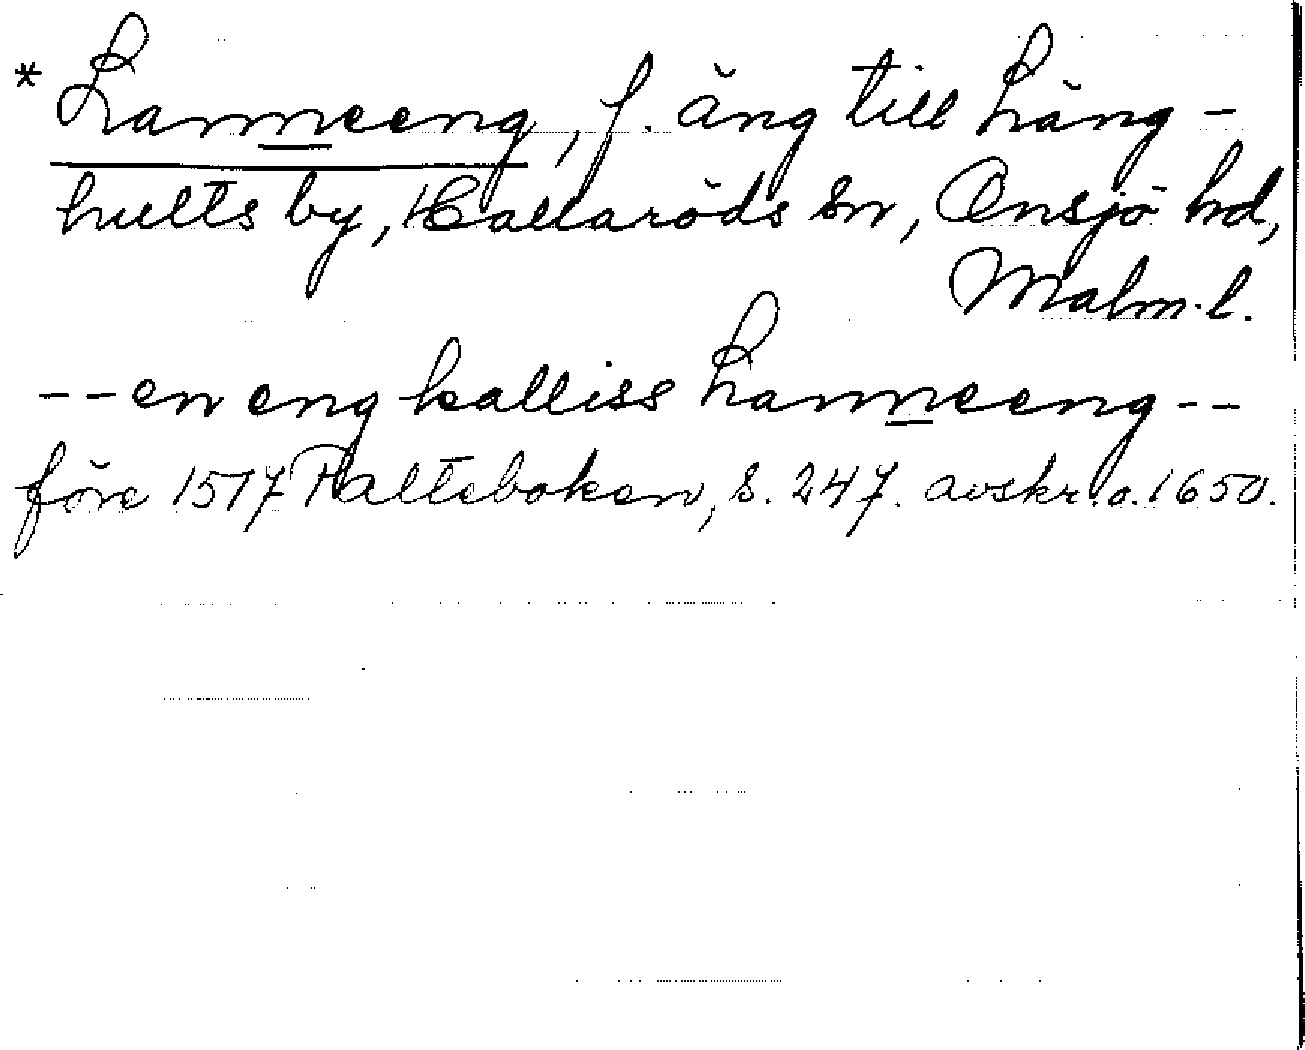 * Lanneeng, f. äng till Häng-
hults by, Hallaröds sn, Onsjö hd,
Malm. l.
-- en eng kalliss Lanneeng --
före 1517 Palteboken, s. 247. avskr. o. 1650.